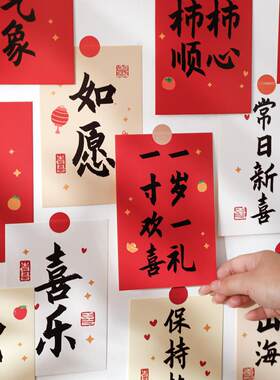 气象
柿柿
顺心
如愿
常日新喜
一岁一礼
一寸欢喜
喜乐
保持
山海